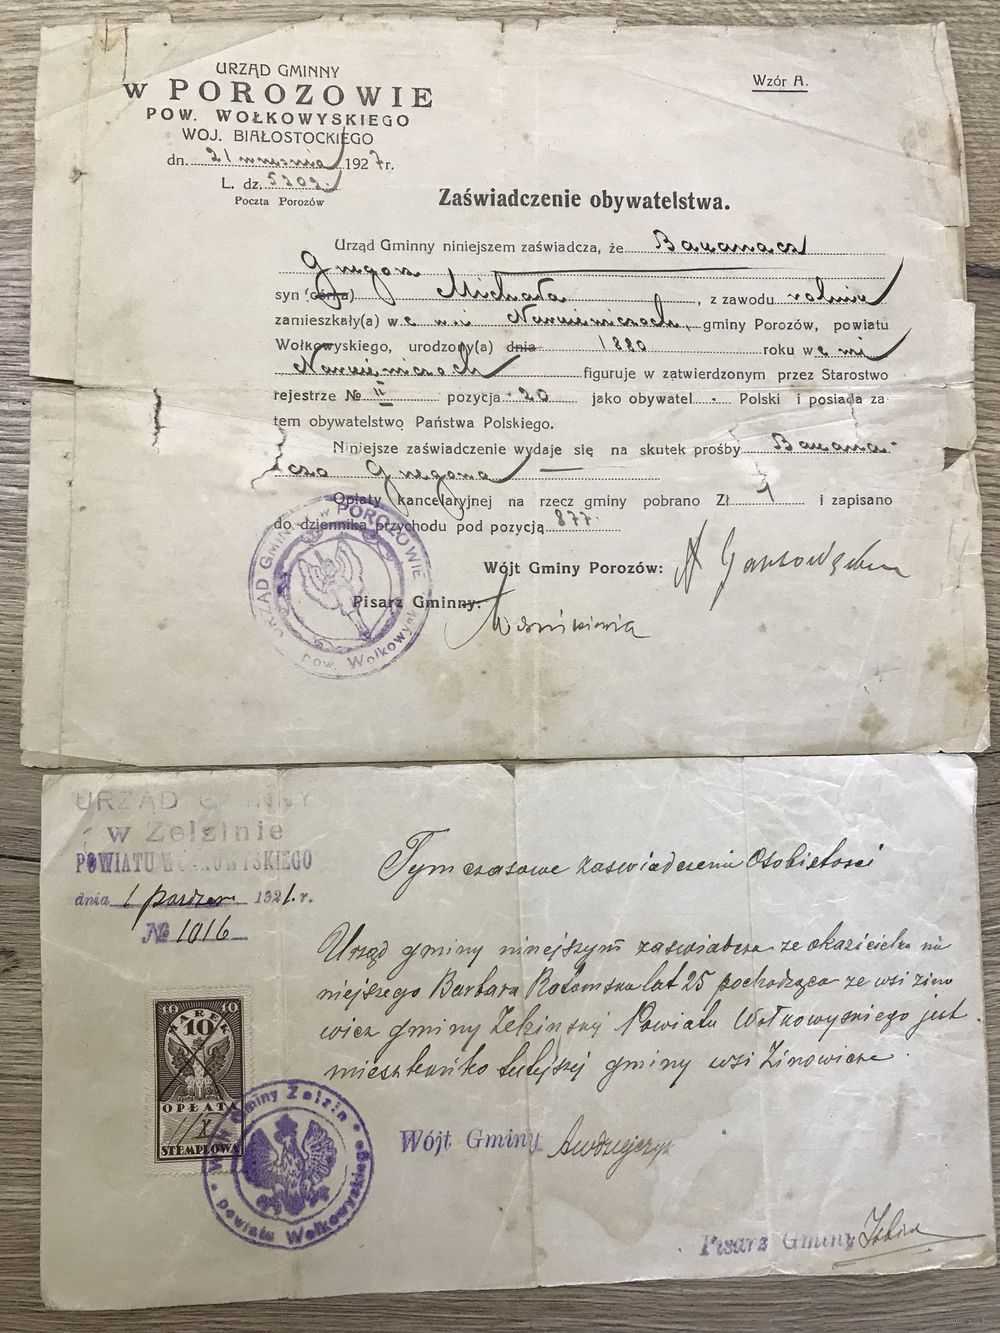 URZĄD GMINNY
W POROZOWIE
POW. WOŁKOWYSKIEGO
WOJ. BIAŁOSTOCKIEGO
dn. 21 września 1927 r.
L. dz. 5202.
Poczta Porozów
Wzór A.
Zaświadczenie obywatelstwa.
Urząd Gminny niniejszem zaświadcza, że Bakanacz
Gregor
syn (córka) Michała, z zawodu rolnik
zamieszkały(a) we wsi, gminy Porozów, powiatu
Wołkowyskiego, urodzony(a) dnia 1880 roku we wsi
figuruje w zatwierdzonym przez Starostwo
rejestrze № II pozycja 20 jako obywatel Polski i posiada za
tem obywatelstwo Państwa Polskiego.
Niniejsze zaświadczenie wydaje się na skutek prośby Bakana-
cza Gregora
Opłaty kancelaryjnej na rzecz gminy pobrano Zł 1 i zapisano
do dziennika przychodu pod pozycją 877.
Wójt Gminy Porozów:
Pisarz Gminny:
URZĄD GMINNY w POROZOWIE
pow. Wołkowysk
URZĄD GMINNY
w Zelzinie
POWIATU WOŁKOWYSKIEGO
dnia 1 1921. r.
№ 1016
Tymczasowe zaswiadczenie Osobistosci
Urząd gminy niniejszym zaswiadcza ze okazicielka ni
niejszego Barbara Ratomska lat 25 pochodząca ze wsi Zino
wicz gminy Zelzinskij Powiatu Wołkowyskiego jest
mieszkańko tutejszej gminy wsi Zinowicze.
10 10
MAREK
10
OPŁATA
1/X
STEMPLOWA
Wójt Gminy Zelzin
powiatu Wołkowyskiego
Wójt Gminy
Pisarz Gminy